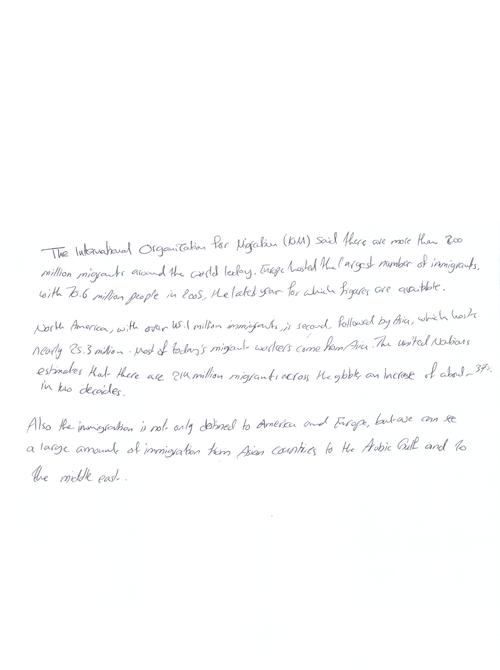 The International Organization for Migration (IOM) said there are more than 200
million migrants around the world today. Europe hosted the largest number of immigrants,
with 70.6 million people in 2005, the latest year for which figures are available.
North America, with over 45.1 million immigrants, is second, followed by Asia, which hosts
nearly 25.3 million. Most of today's migrant workers come from Asia. The United Nations
estimates that there are 214 million migrants across the globe, an increase of about 37%
in two decades.
Also the immigration is not only defined to America and Europe, but we can see
a large amounts of immigration from Asian countries to the Arabic Gulf and to
the middle east.